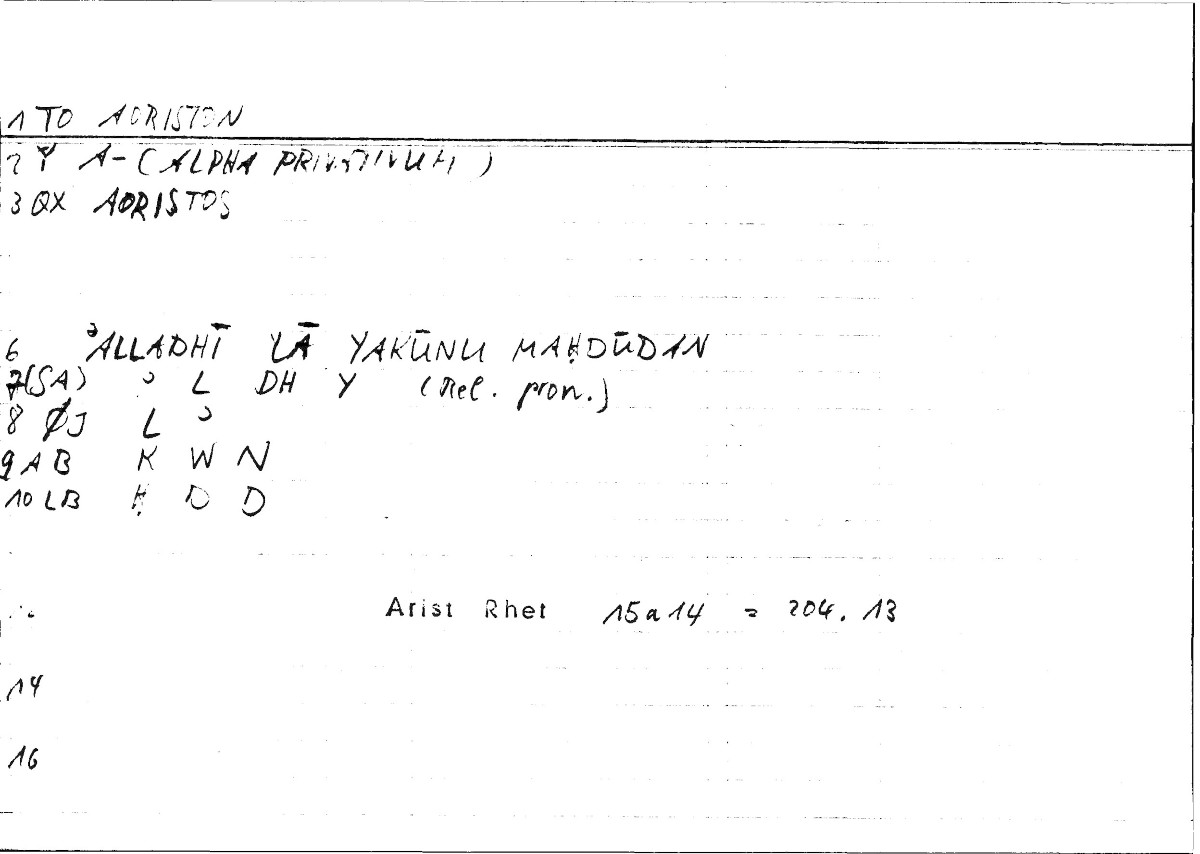 1 TO AORISTON
2 Ÿ A- (ALPHA PRIVATIVUM)
3 QX AORISTOS
6 ʾALLADHĪ LĀ YAKŪNU MAḤDŪDAN
7(SA) ʾ L DH Y (Rel. pron.)
8 ØJ L ʾ
9 AB K W N
10 LB Ḥ D D
Arist Rhet 15a14 = 204.13
14
16